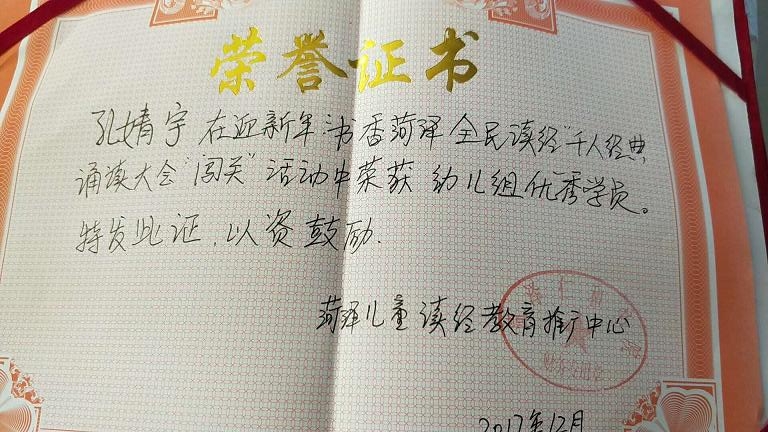 荣誉证书
孔婧宇 在迎新年 书香菏泽 全民读经"千人经典
诵读大会"闯关"活动中荣获 幼儿组优秀学员。
特发此证，以资鼓励.
菏泽儿童读经教育推广中心
财务专用章
2017年12月